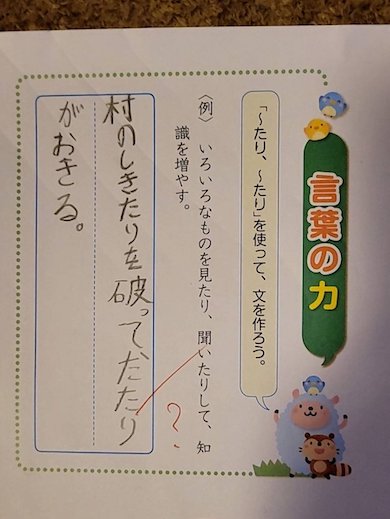 言葉の力
「〜たり、〜たり」を使って、文を作ろう。
〈例〉 いろいろなものを見たり、聞いたりして、知
識を増やす。
村のしきたりを破ってたたり
がおきる。
?